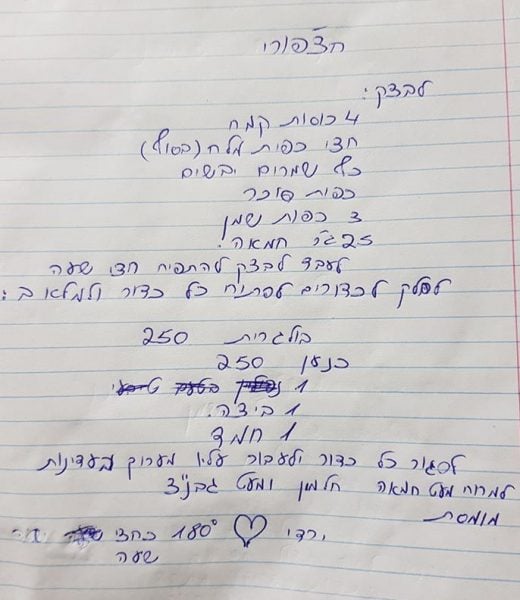 חצ'פורי
לבצק:
4 כוסות קמח
חצי כפית מלח (בסוף)
כף שמרים יבשים
כפית סוכר
3 כפות שמן
25 גר' חמאה.
לעבד לבצק להתפיח חצי שעה
לחלק לכדורים לפתוח כל כדור ולמלא ב:
בולגרית 250
כנען 250
1
1 ביצה.
1 חמד
לסגור כל כדור ולעבור עליו מערוך בעדינות
למרוח מעט חמאה חלמון ומעט גבנ"צ
מומסת
ורדי ♡ 180° כחצי
שעה